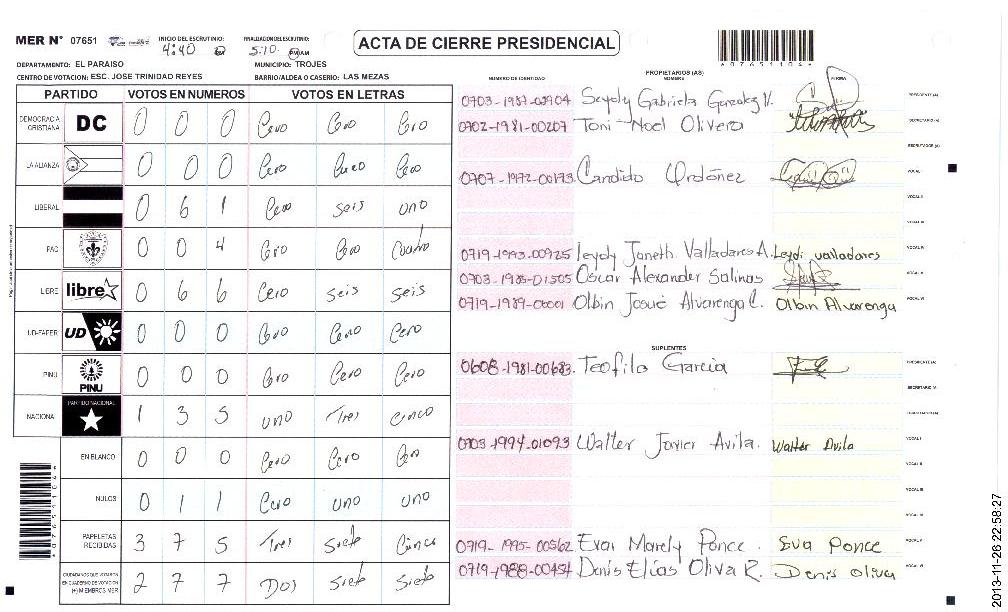 MER N° 07651 INICIO DEL ESCRUTINIO: 4:40 PM FINALIZACION DEL ESCRUTINIO: 5:10 PM/AM
ACTA DE CIERRE PRESIDENCIAL
DEPARTAMENTO: EL PARAISO MUNICIPIO: TROJES
CENTRO DE VOTACION: ESC. JOSE TRINIDAD REYES BARRIO/ALDEA O CASERIO: LAS MEZAS
PARTIDO VOTOS EN NUMEROS VOTOS EN LETRAS
DEMOCRACIA CRISTIANA DC 0 0 0 Cero Cero Cero
LA ALIANZA 0 0 0 Cero Cero Cero
LIBERAL 0 6 1 Cero seis uno
PAC 0 0 4 Cero Cero Cuatro
LIBRE libre 0 6 6 Cero seis seis
UD-FAPER UD 0 0 0 Cero Cero Cero
PINU PINU 0 0 0 Cero Cero Cero
NACIONAL PARTIDO NACIONAL 1 3 5 uno Tres Cinco
EN BLANCO 0 0 0 Cero Cero Cero
NULOS 0 1 1 Cero uno uno
PAPELETAS RECIBIDAS 3 7 5 Tres Siete Cinco
CIUDADANOS QUE VOTARON EN CUADERNO DE VOTACION (+) MIEMBROS MER 2 7 7 Dos Siete Siete
*07651104*
NUMERO DE IDENTIDAD PROPIETARIOS (AS) NOMBRE FIRMA
0703-1987-03904 Gabriela Gonzalez V. PRESIDENTE (A)
0702-1981-00207 Toni Noel Olivera SECRETARIO (A)
ESCRUTADOR (A)
0707-1972-00173 Candido Ordoñez VOCAL I
VOCAL II
VOCAL III
0719-1993-00925 Leydy Janeth Valladares A. Leydi valladares VOCAL IV
0703-1985-01505 Oscar Alexander Salinas VOCAL V
0719-1989-00001 Olbin Josué Alvarenga C. Olbin Alvarenga VOCAL VI
SUPLENTES
0608-1981-00683 Teofilo Garcia PRESIDENTE (A)
SECRETARIO (A)
ESCRUTADOR (A)
0703-1994-01093 Walter Javier Avila. Walter Avila VOCAL I
VOCAL II
VOCAL III
VOCAL IV
0719-1995-00562 Eva Marely Ponce. Eva Ponce VOCAL V
0719-1988-00454 Denis Elías Oliva R. Denis Oliva VOCAL VI
2013-11-26 22:58:27